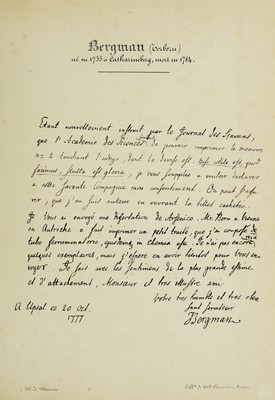 Bergman (Torbern)
né en 1735 à Catharineberg, mort en 1784.
Etant nouvellement instruit par le Journal des Savans,
que l'Academie des Sciences de pouvoir imprimer le memoire
n= 2 touchant l'indigo, dont la devise est. Nisi utile est, quod
facimus, stulta est gloria, je vous supplie a vouloir declarer
a cette savante Compagnie mon consentiment. On peut s'assu
rer, que j'en suis auteur en ouvrant le billet cacheté.
Je Vous ai envoyé une dissertation de Arsenico. Mr. Born a Vienne
en Autriche a fait imprimer un petit traité, que j'ai composé de
tubo ferruminatorio, ejusdemq. in chemia usu. Je n'ai pas encore
quelques exemplaires, mais j'espere en avoir bientôt pour Vous en-
voyer. Je suis avec les sentimens de la plus grande estime
et d'attachement, Monsieur et tres illustre ami
Votre tres humble et tres obeis
sant serviteur
TBergman
A Upsal ce 20 Oct.
1777.